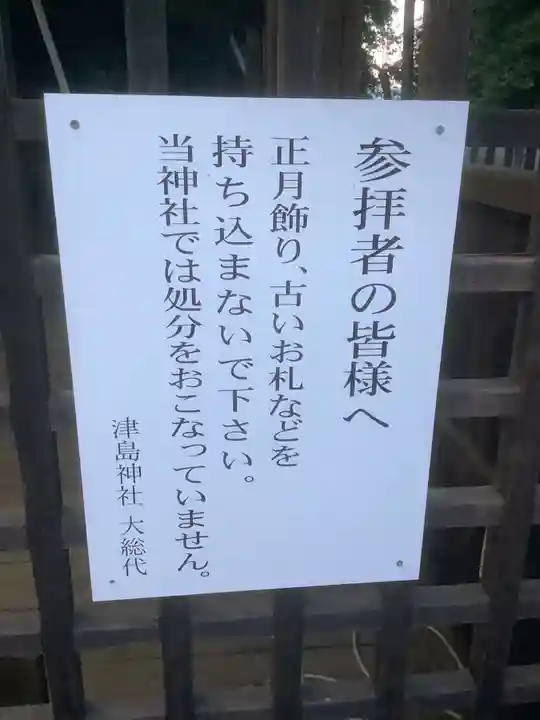 参拝者の皆様へ
正月飾り、古いお札などを
持ち込まないで下さい。
当神社では処分をおこなっていません。
津島神社 大総代